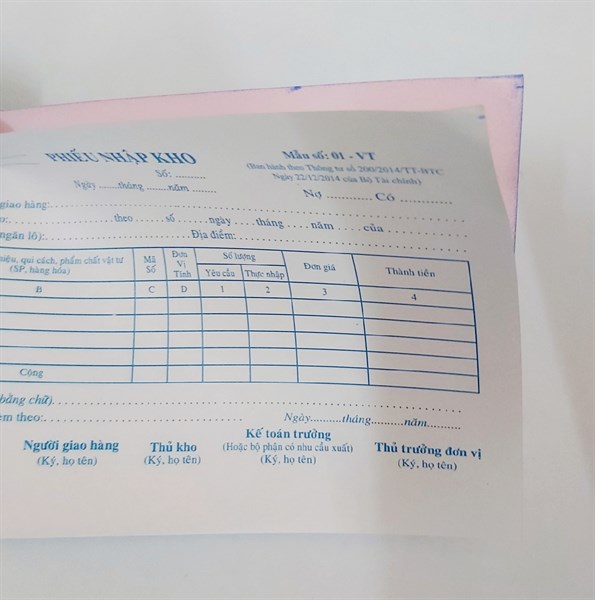 PHIẾU NHẬP KHO
Mẫu số: 01 - VT
Số: ..........
(Ban hành theo Thông tư số 200/2014/TT-BTC
Ngày ......tháng .......năm ........
Ngày 22/12/2014 của Bộ Tài chính)
Nợ ............ Có .............
giao hàng:.....................................................................
..............theo ....... số ....... ngày ...... tháng ...... năm ...... của .......
ngăn lô):............................ Địa điểm:.............................................
hiệu, qui cách, phẩm chất vật tư
(SP, hàng hóa)
Mã
Số
Đơn
Vị
Tính
Số lượng
Yêu cầu
Thực nhập
Đơn giá
Thành tiền
B
C
D
1
2
3
4
Cộng
bằng chữ)......................................................................
theo:.....................................
Ngày..........tháng..........năm..........
Người giao hàng
(Ký, họ tên)
Thủ kho
(Ký, họ tên)
Kế toán trưởng
(Hoặc bộ phận có nhu cầu xuất)
(Ký, họ tên)
Thủ trưởng đơn vị
(Ký, họ tên)